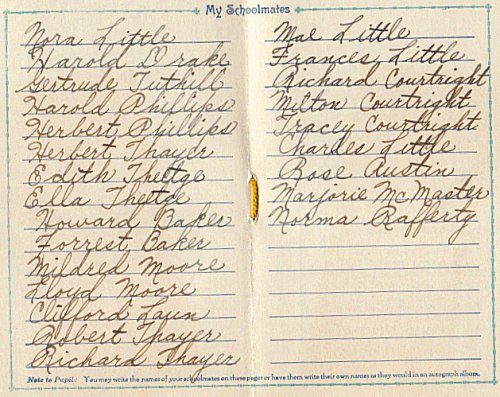 My Schoolmates
Nora Little
Harold Drake
Gertrude Tuthill
Harold Phillips
Herbert Phillips
Herbert Thayer
Edith Theetge
Ella Theetge
Howard Baker
Forrest Baker
Mildred Moore
Floyd Moore
Clifford Laun
Robert Thayer
Richard Thayer
Mae Little
Frances Little
Richard Courtright
Milton Courtright
Tracey Courtright
Charles Little
Rose Austin
Marjorie McMaster
Norma Rafferty
Note to Pupil: You may write the names of your schoolmates on these pages or have them write their own names as they would in an autograph album.